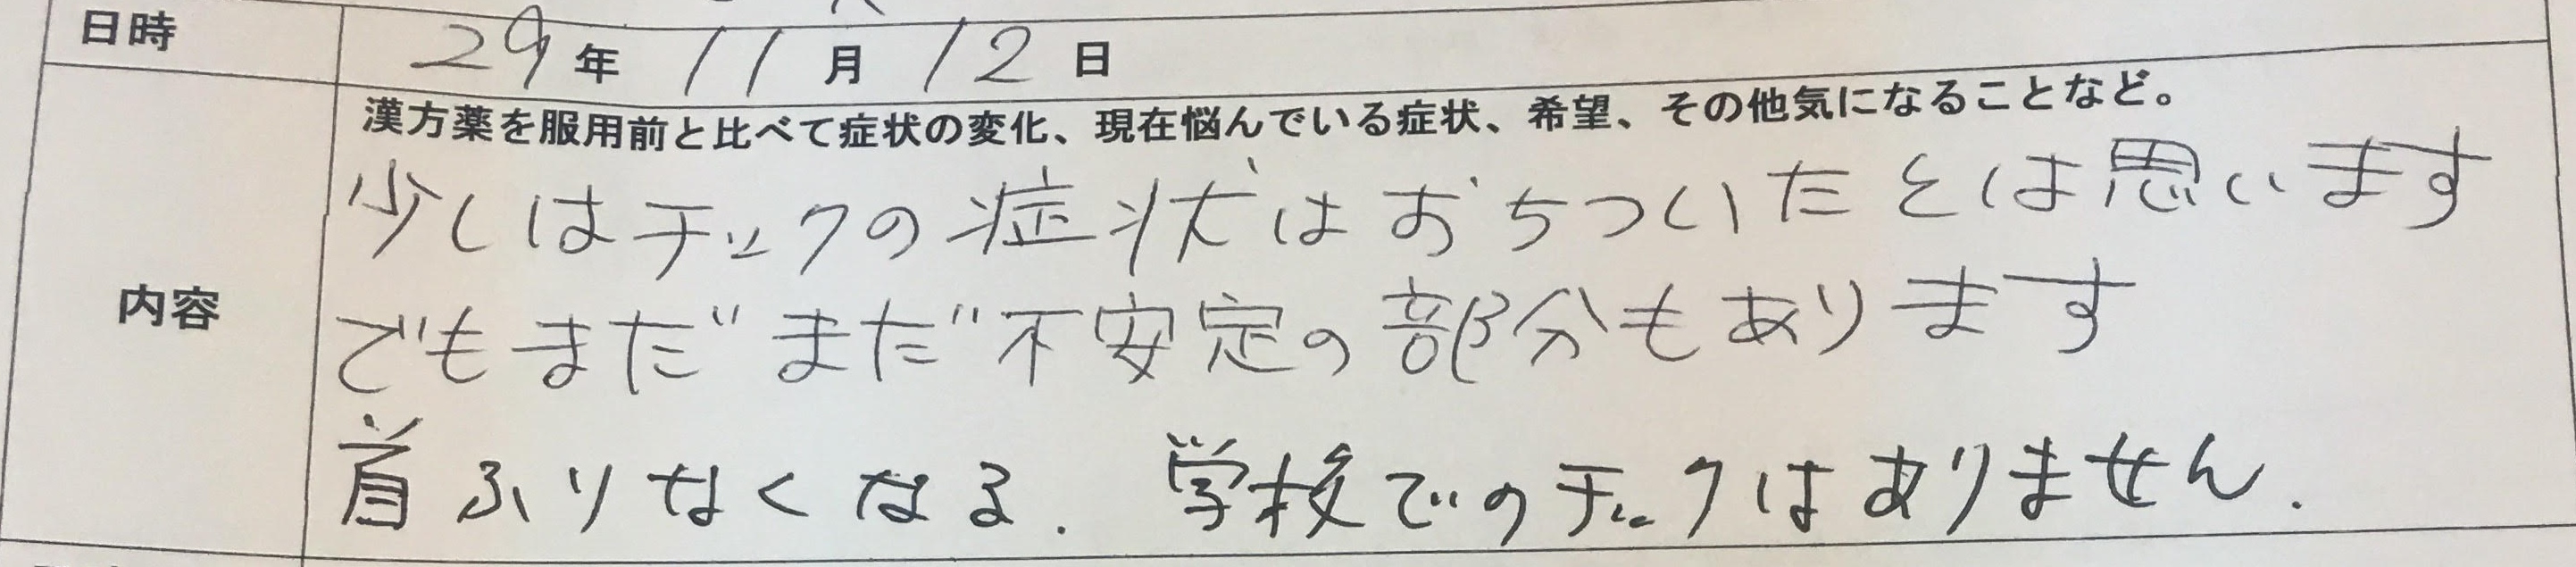 日時 29年 11月 12日
漢方薬を服用前と比べて症状の変化、現在悩んでいる症状、希望、その他気になることなど。
少しはチックの症状はおちついたとは思います
内容
でもまだまだ不安定の部分もあります
首ふりなくなる. 学校でのチックはありません.